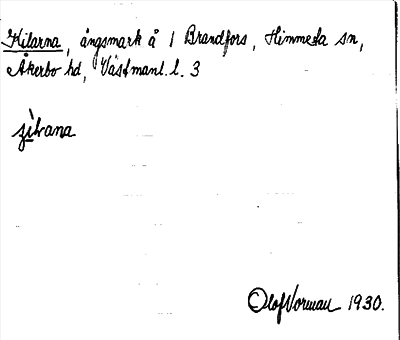 Kilarna, ängsmark å 1 Brandfors, Himmeta sn,
Åkerbo hd, Västmanl. l. 3
Olof Vorman 1930.